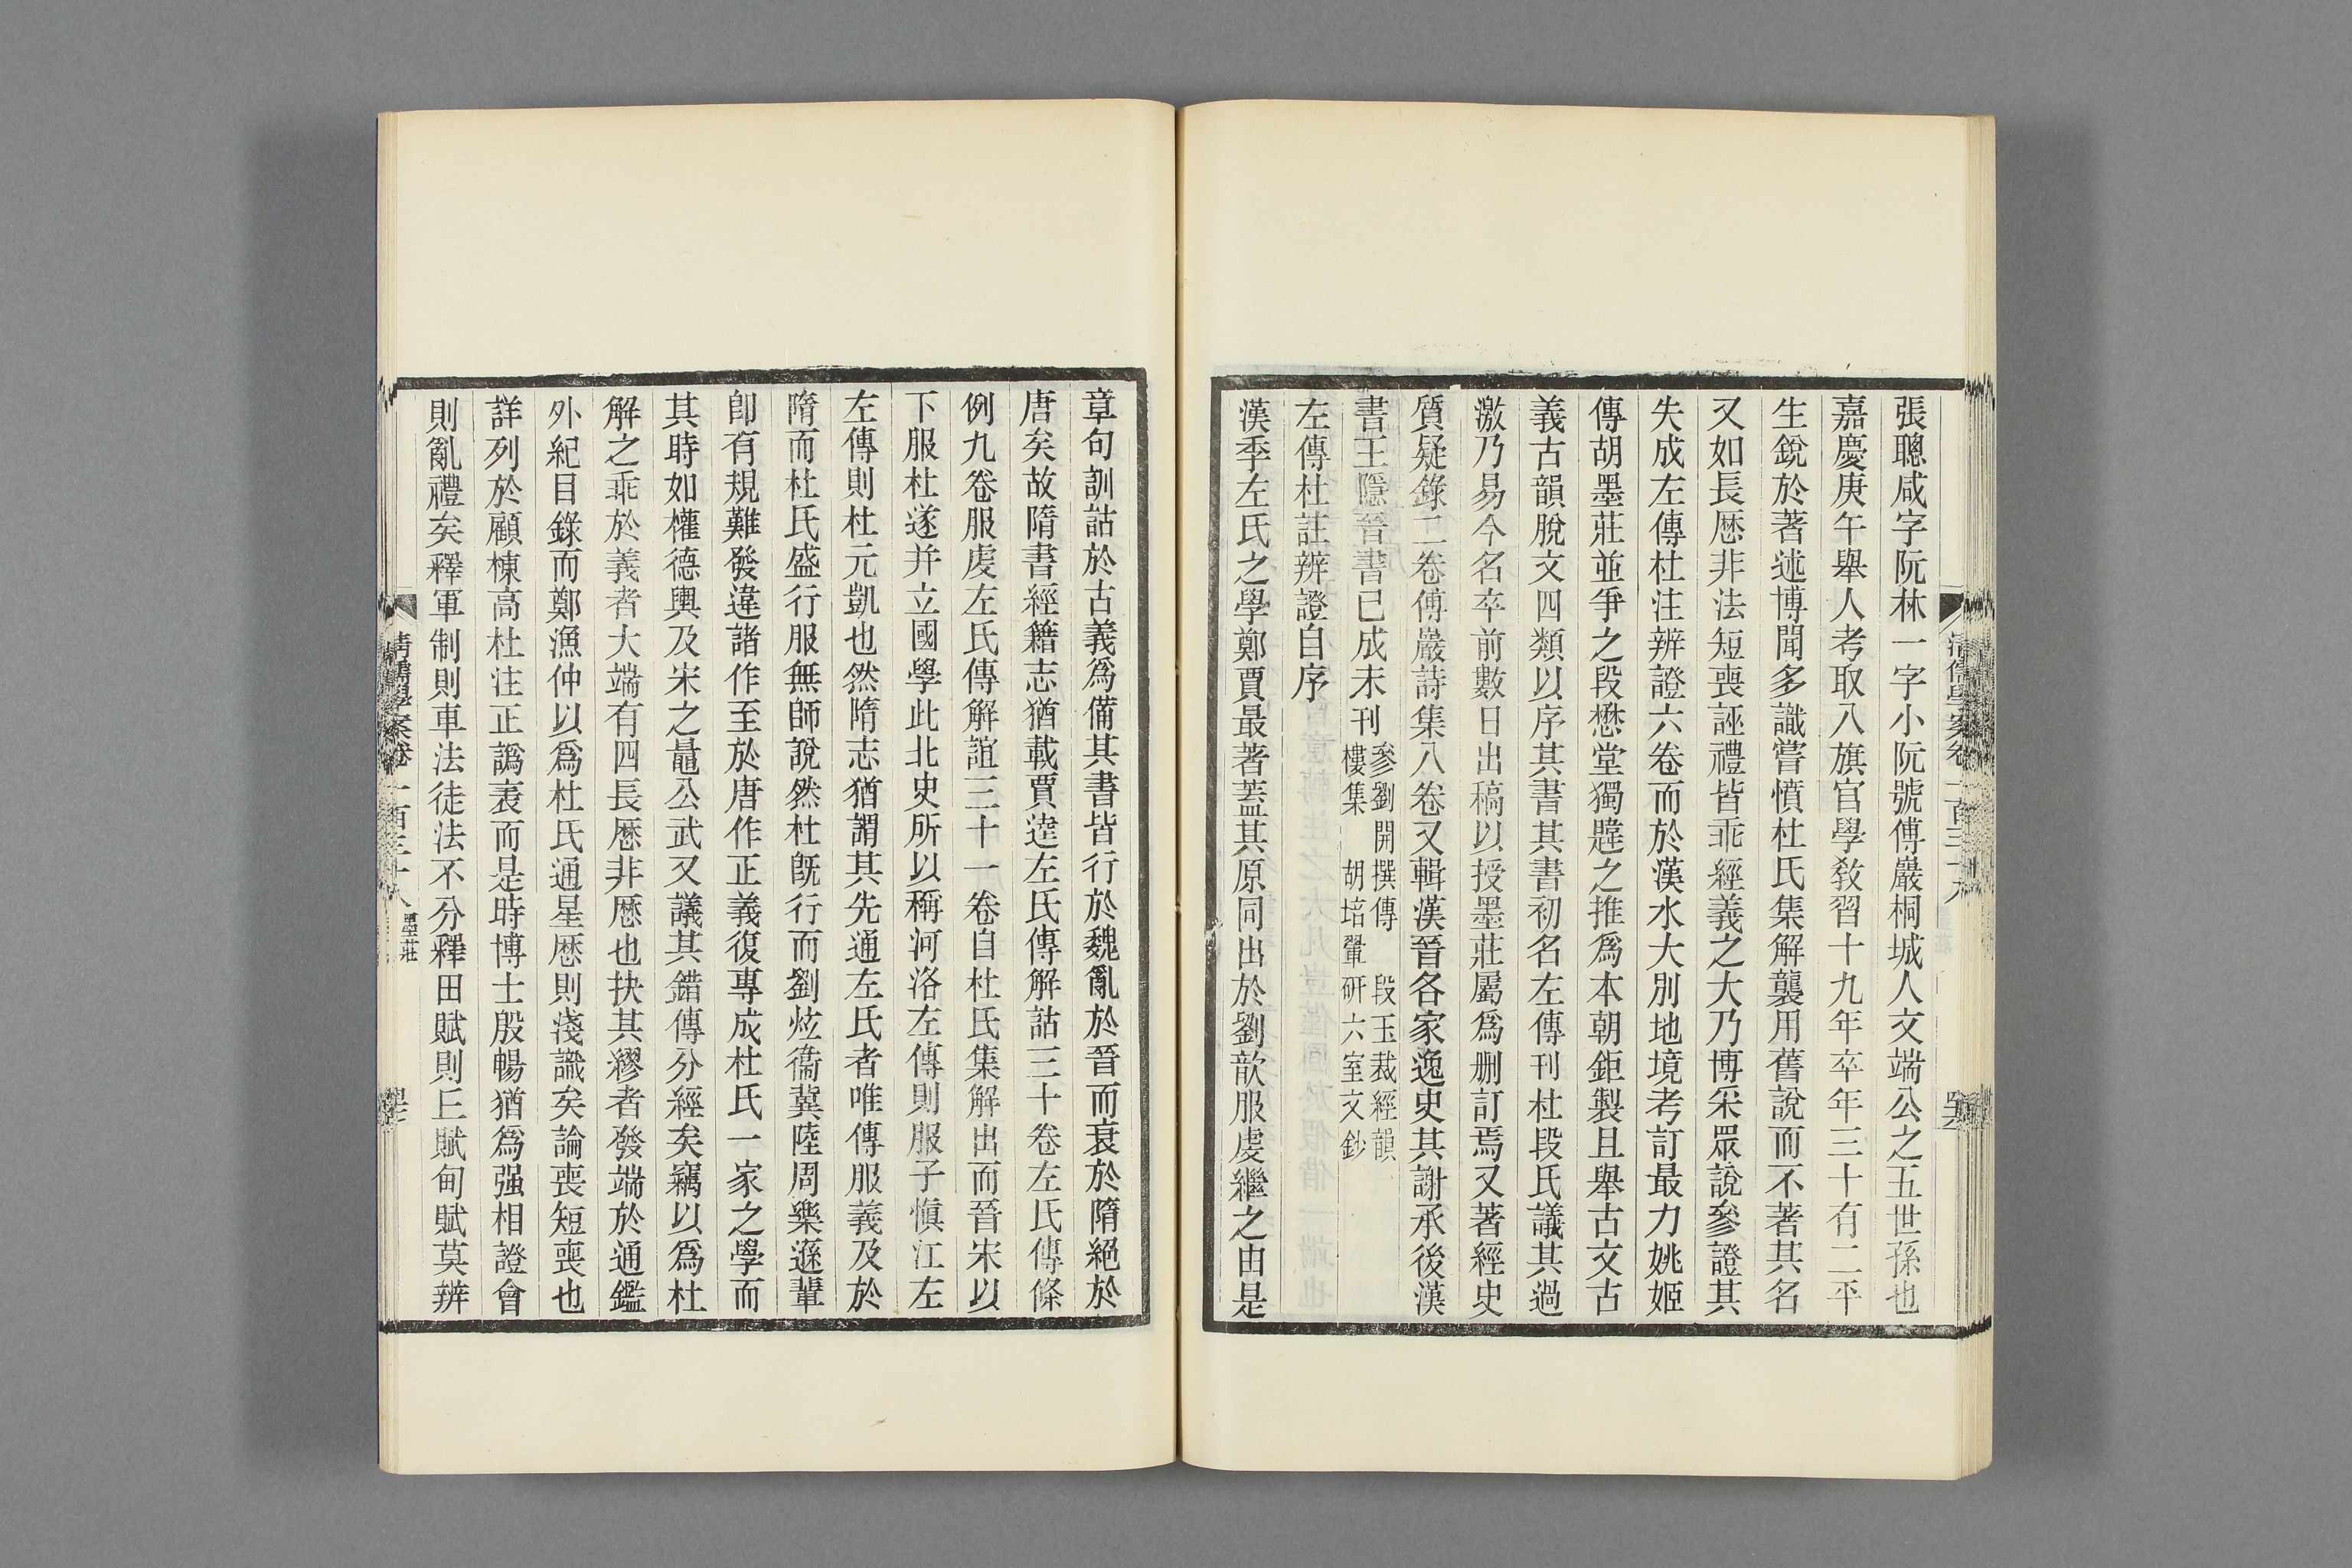 張聰咸字阮林一字小阮號傅巖桐城人文端公之五世孫也
嘉慶庚午舉人考取八旗官學敎習十九年卒年三十有二平
生銳於著述博聞多識嘗憤杜氏集解襲用舊說而不著其名
又如長厯非法短喪誣禮皆乖經義之大乃博采眾說參證其
失成左傳杜注辨證六卷而於漢水大別地境考訂最力姚姬
傳胡墨莊並爭之段懋堂獨韙之推爲本朝鉅製且舉古文古
義古韻脫文四類以序其書其書初名左傳刊杜段氏議其過
激乃易今名卒前數日出稿以授墨莊屬爲刪訂焉又著經史
質疑錄二卷傅巖詩集八卷又輯漢晉各家逸史其謝承後漢
書王隱晉書已成未刊
參劉開撰傳　段玉裁經韻
樓集　胡培翬研六室文鈔
左傳杜註辨證自序
漢季左氏之學鄭賈最著蓋其原同出於劉歆服虔繼之由是
章句訓詁於古義爲備其書皆行於魏亂於晉而衰於隋絕於
唐矣故隋書經籍志猶載賈逵左氏傳解詁三十卷左氏傳條
例九卷服虔左氏傳解誼三十一卷自杜氏集解出而晉宋以
下服杜遂并立國學此北史所以稱河洛左傳則服子愼江左
左傳則杜元凱也然隋志猶謂其先通左氏者唯傳服義及於
隋而杜氏盛行服無師說然杜旣行而劉炫衞冀陸周樂遜輩
卽有規難發違諸作至於唐作正義復專成杜氏一家之學而
其時如權德輿及宋之鼂公武又議其錯傳分經矣竊以爲杜
解之乖於義者大端有四長厯非厯也抉其繆者發端於通鑑
外紀目錄而鄭漁仲以爲杜氏通星厯則淺識矣論喪短喪也
詳列於顧棟高杜注正譌表而是時博士殷暢猶爲强相證會
則亂禮矣釋軍制則車法徒法不分釋田賦則丘賦甸賦莫辨
清儒學案卷一百三十八
墨莊